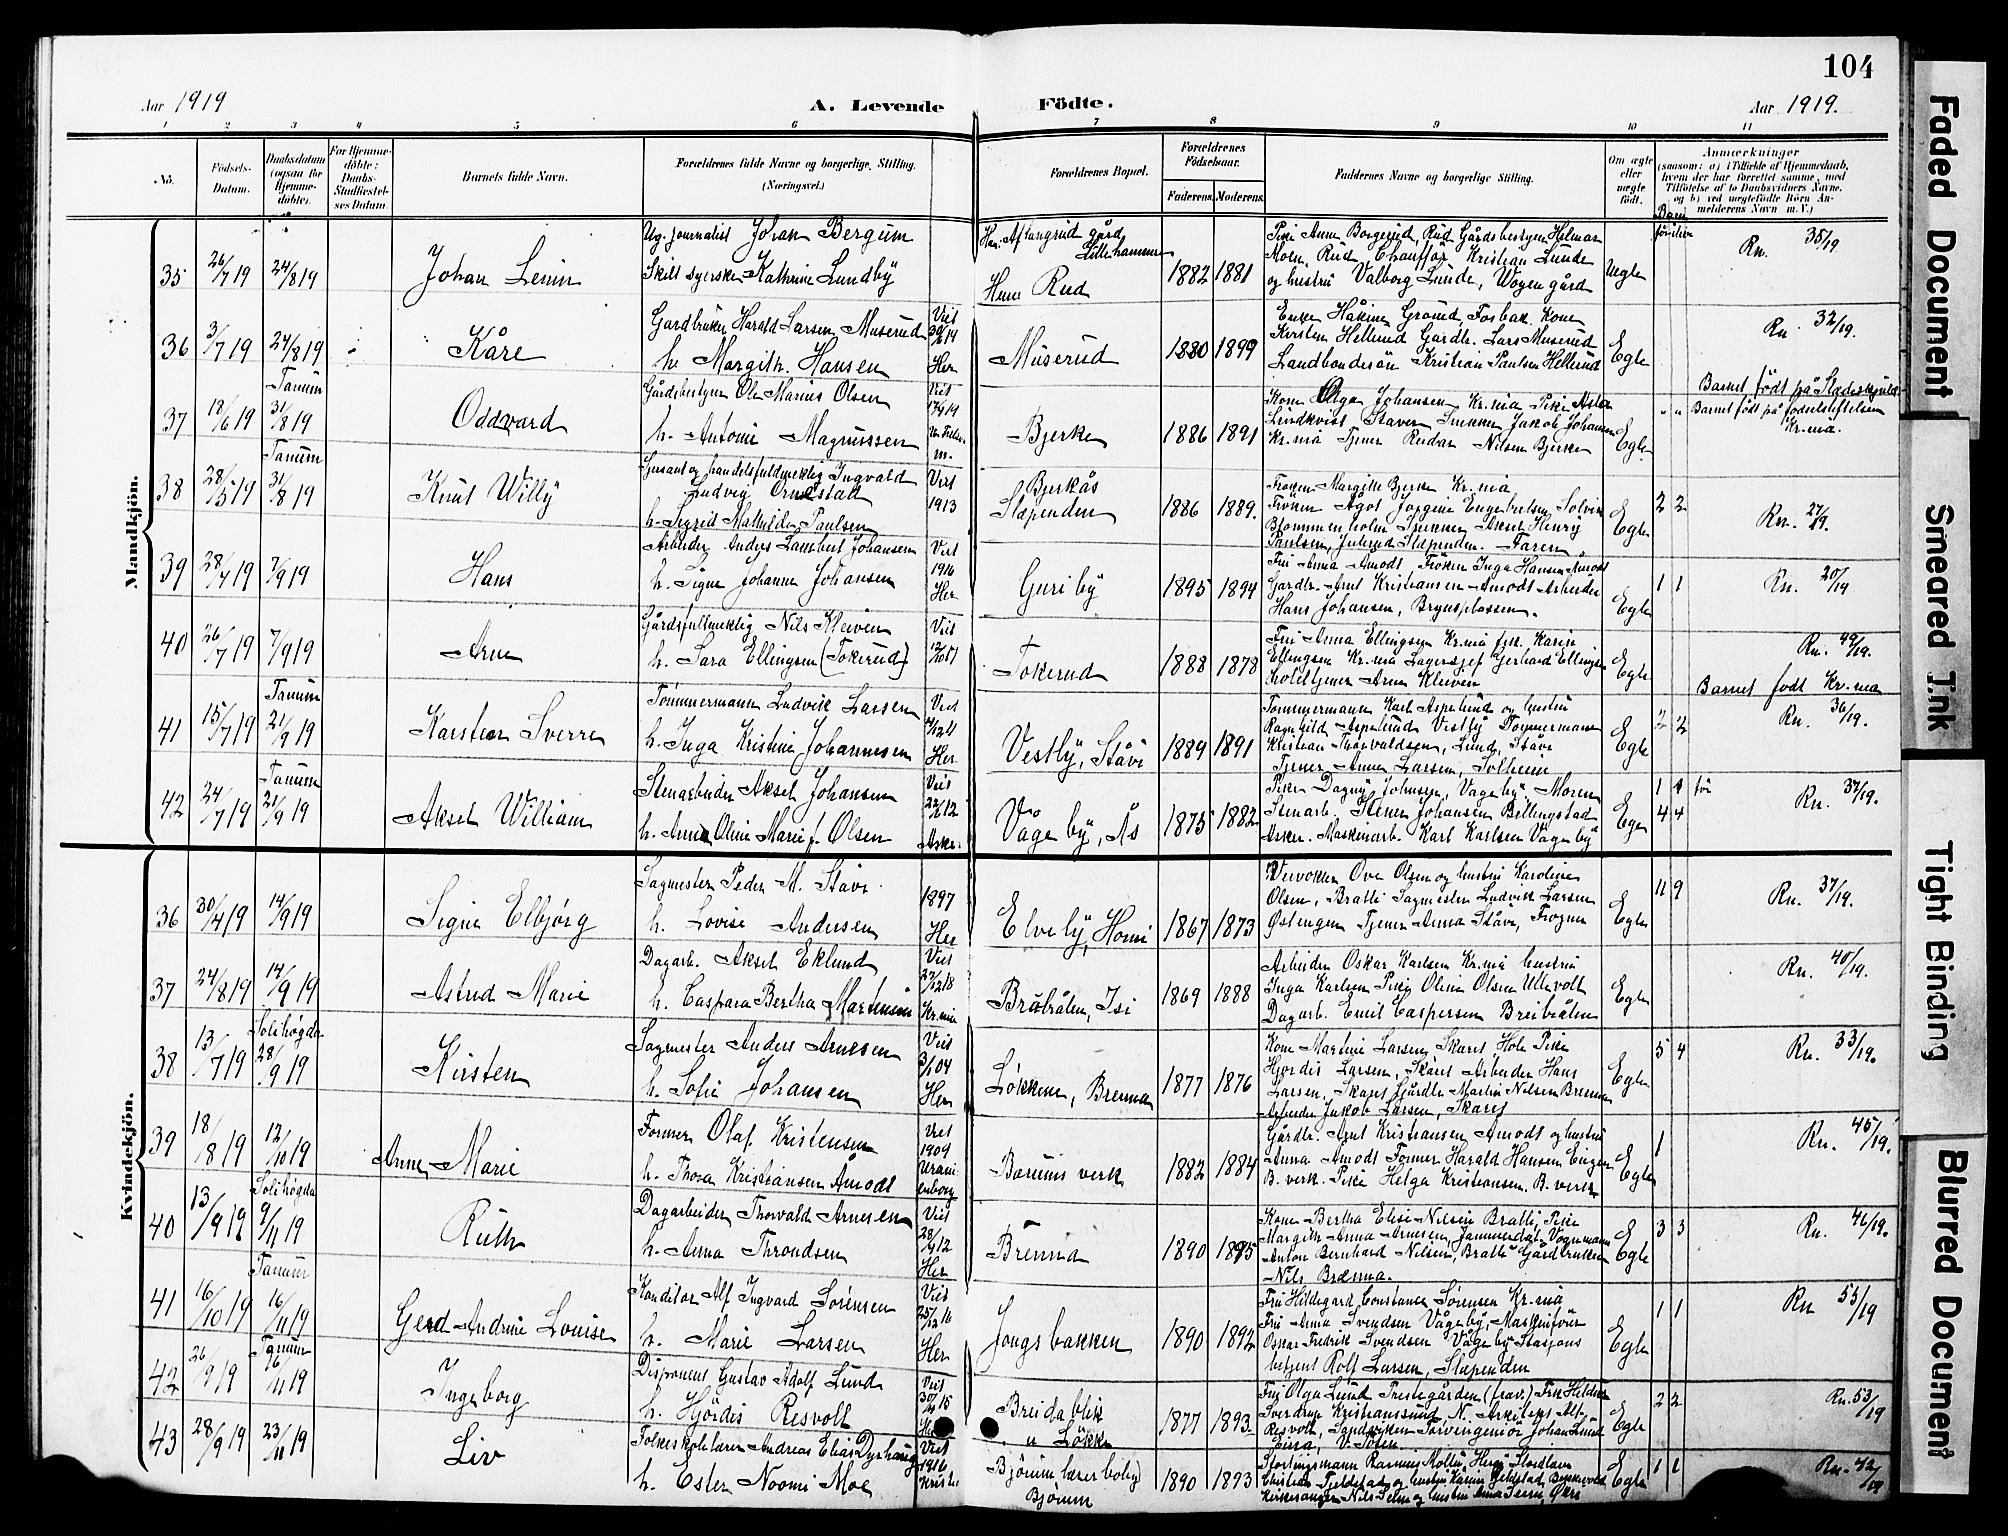 104
Aar 1919
A. Levende
Födte.
Aar 1919.
1 2 3 4 5 6 7 8 9 10 11
No.
Födsels-
Datum.
Daabsdatum
(ogsaa for
Hjemme-
döbte).
For Hjemme-
döbte:
Daabs-
Stadfæstel-
ses Datum.
Barnets fulde Navn.
Forældrenes fulde Navne og borgerlige Stilling.
(Næringsvei.)
Forældrenes Bopæl.
Forældrenes
Födselsaar.
Faderens. Moderens.
Faddernes Navne og borgerlige Stilling.
Om ægte
eller
uægte
født.
Anmærkninger
(saasom: a) i Tilfælde af Hjemmedaab,
hvem der har forrettet samme, med
Tilföielse af to Daabsvidners Navne,
og b) ved uægtefödte Börn An-
melderens Navn m. V.)
Mandkjön.
35 26/7 19 24/8 19 Johan Lenin
Ug. journalist Johan Bergum
Skilt syerske Kathrine Lundby
Lillehammer
Rud
1882 1881
Pike Anne Borgerud, Rud Gårdsbestyrer Helmar
Moen, Rud Chauffør Kristian Lunde
og hustru Valborg Lunde, Woyen gård
Uegte
Rn. 35/19
36 3/7 19 24/8 19 Kåre
Gardbruker Harald Larsen Muserud
h. Margith. Hansen
Her
Muserud
1880 1899
Kirsten Hellerud Gardbr. Lars Muserud
Landbondesön Kristian Paulsen Hellerud
Egte
Rn. 32/19.
37 18/6 19 Tanum 31/8 19 Oddvard
Gårdsbestyrer Ole Marius Olsen
h. Antoni Magnussen
Bjerke
1886 1891
Kone Olga Johansen Kr.nia Pike Asta
Lindkvist Staver Snekker Jakob Johansen
Kr.nia Tjener Reidar Nilsen Bjerke
Egte
Barnet født på fødselstiftelsen
Kr.nia.
38 28/5 19 Tanum 31/8 19 Knut Willy
Sersant og handelsfuldmektig Ingvald
Ludvig Ornestad
h. Sigrid Mathilde Paulsen
Viet
1913
Bjerkås
Slæpenden
1886 1889.
Frøken Margith Bjerke Kr.nia
Frøken Ågot Jorgine Engebretsen Solvik
Blommenholm Snekker Aksel Henry
Paulsen, Julerud Slæpenden. Faren
Egte
2 2
Rn. 27/19.
39 28/4 19 7/9 19 Hans
Arbeider Anders Lambert Johansen
h. Signe Johanne Johansen
Viet
1916
Her
Guriby
1895 1894
Fru Anna Amodt Frøken Inga Hansen Amodt
Gardbr. Arnt Kristiansen Amodt Arbeider
Hans Johansen, Brynsplassen.
Egte
1 1
Rn. 20/19
40 26/7 19 7/9 19 Arne
Gårdsfullmektig Nils Kleiven
h. Sara Ellingsen (Tokerud)
Viet
Tokerud
1888 1878
Fru Anna Ellingsen Kr.nia frk. Karin
Ellingsen Kr.nia Lagersjef Gerhard Ellingsen
hotelltjener Arne Kleiven
Egte
Rn. 49/19.
Barnet født Kr.nia
41 15/7 19 Tanum 21/9 19 Karsten Sverre
Tømmermann Ludvik Larsen
h. Inga Kristine Johannesen
Viet
Her
Vestby, Ståvi
1889 1891
Tømmermann Karl Aspelund og hustru
Ragnhild Aspelund Vestby Tømmermann
Kristian Thorvaldsen, Lund, Ståvi
Tjener Anne Larsen, Solheim
Egte
2 2
Rn. 36/19.
42 24/7 19 Tanum 21/9 19 Aksel William
Stenarbeider Aksel Johansen
h. Anne Oline Marie f. Olsen
Viet
22/12
Asker.
Vågeby, Ås
1875 1882
Pike Dagny Johnsen, Vågeby Moren
Stenarb. Stener Johansen Bellingstad
Asker. Maskinarb. Karl Karlsen Vågeby
Egte
4 4
Rn. 37/19.
Kvindekjön.
36 30/4 19 14/9 19 Signe Elbjørg
Sagmester Peder M. Stave
h. Lovise Andersen
1897
Her
Elveby, Horni
1867 1873
Veivokter Ove Olsen og hustru Karoline
Olsen, Bratli Sagmester Ludvik Larsen
Østengen Tjener Anna Ståvi, Frogner
Egte
11 9
Rn. 37/19.
37 24/8 19 14/9 19 Astrid Marie
Dagarb. Aksel Eklund
h. Caspara Bertha Martinsen
Viet
Kr.nia
Bråtråten, Isi
1869 1888
Arbeider Oskar Karlsen Kr.nia hustru
Inga Karlsen Pike Oline Olsen Ullevolt
Dagarb. Emil Caspersen Breibråten
Egte
Rn. 40/19.
38 13/7 19 Solihøgda 28/9 19 Kirsten
Sagmester Anders Arnesen
h. Sofie Johansen
Viet
3/1 04
Her
Løkkene, Brenna
1877 1876
Kone Martine Larsen, Skaret Hole Pike
Hjordis Larsen, Skaret Arbeider Hans
Larsen, Skaret Gårdbr Martin Nilsen Brenna
Arbeider Jakob Larsen, Skaret
Egte
5 4
Rn. 33/19.
39 18/8 19 12/10 19 Anne Marie
Former Olaf Kristensen
h. Thora Kristiansen Åmodt
Viet
1909
Urani
enborg
Bærums verk
1882 1884
Gårdbr. Arnt Kristiansen Amodt og hustru
Anna Amodt Former Harald Hansen Eingen
B. verk. Pike Helga Kristiansen. B. verk
Egte
1
Rn. 45/19.
40 13/9 19 Solihøgda 9/11 19 Ruth
Dagarbeider Thorvald Arnesen
h. Anna Throndsen
Viet
28/9 12
Her
Brenna
1890 1895
Kone Bertha Elise Nilsen Bratli, Pike
Margith Anna Arnesen, Jammerdal Vognmann
Anton Bernhard Nilsen, Bratli Gårdbruker
Nils Brenna.
Egte
3 3
Rn. 46/19.
41 16/10 19 Tanum 16/11 19 Gerd Andrine Louise
Konditor Alf Ingvard Sørensen
h. Marie Larsen
Viet
25/12 16
Her
Jongsbakken
1890 1892
Fru Hildegard Constance Sørensen Kr.nia
Fru Anna Svendsen Vågeby Maskinfører
Oskar Fredrik Svendsen Vågeby Stasjons
betjent Rolf Larsen, Slæpenden
Egte
1 1
Rn 55/19
42 26/9 19 Tanum 16/11 19 Ingeborg
Disponent Gustav Adolf Lund
h. Hjördis Resvoll
Viet
Breidablik
Løkke
1877 1893.
Fru Olga Lund Prestegården (frav.) Frk Hildur
Sverdrup Kristianssund N. Arkitekt Alf
Resvoll, Sandviken Torvingeniør Johan Lund
Egte
2 2
Rn. 53/19
43 28/9 19 23/11 19 Liv
Folkeskolelærer Andreas Elias Dyrhaug
h. Ester Noomi Moe
Viet
1916
Bjørum lærerbolig
Bjørum
1890 1893
Stortingsmann Rasmus
Egte
1 1
Rn. 42/19
Faded Document
Smeared Ink
Tight Binding
Blurred Document